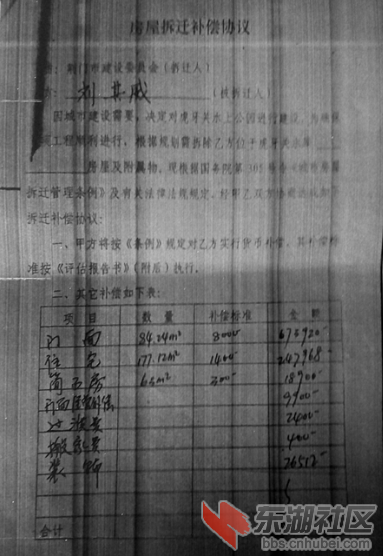 房屋拆迁补偿协议
荆门市建设委员会（拆迁人）
（被拆迁人）
因城市建设需要，决定对虎牙关水上公园进行建设。为确保
工程顺利进行，根据规划需拆除乙方位于虎牙关水库
房屋及附属物。现根据国务院第305号令《城市房屋
拆迁管理条例》及有关法律法规规定，经甲乙双方
拆迁补偿协议：
一、甲方将按《条例》规定对乙方实行货币补偿，其补偿标
准按《评估报告书》（附后）执行。
二、其它补偿如下表：
项目 数量 补偿标准 金额
门面 84.24m² 8000 673920
住宅 177.12m² 1400 247968
63m² 300 18900
9900
过渡费 2400
搬家费 400
装饰
合计
东湖社区
bbs.cnhubei.com